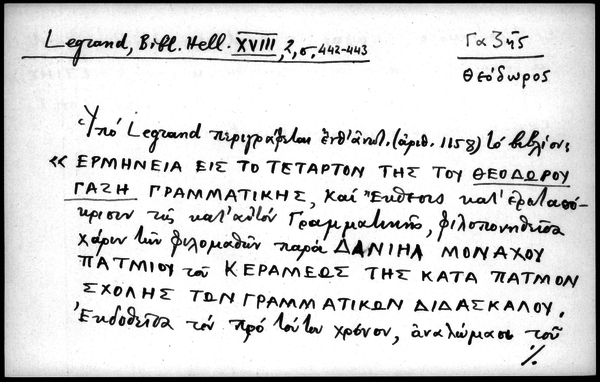 Legrand, Bibl. Hell. XVIII, 2, σ. 442-443
Γαζῆς
Θεόδωρος
Ὑπό Legrand περιγράφεται ἐνθ' ἀνωτ. (ἀριθ. 1158) τό βιβλίον:
« ΕΡΜΗΝΕΙΑ ΕΙΣ ΤΟ ΤΕΤΑΡΤΟΝ ΤΗΣ ΤΟΥ ΘΕΟΔΩΡΟΥ
ΓΑΖΗ ΓΡΑΜΜΑΤΙΚΗΣ, καί Ἔκθεσις κατ' ἐρωταπό-
κρισιν τῆς κατ' αὐτόν Γραμματικῆς, φιλοπονηθεῖσα
χάριν τῶν φιλομαθῶν παρά ΔΑΝΙΗΛ ΜΟΝΑΧΟΥ
ΠΑΤΜΙΟΥ τοῦ ΚΕΡΑΜΕΩΣ ΤΗΣ ΚΑΤΑ ΠΑΤΜΟΝ
ΣΧΟΛΗΣ ΤΩΝ ΓΡΑΜΜΑΤΙΚΩΝ ΔΙΔΑΣΚΑΛΟΥ.
Ἐκδοθεῖσα τόν πρό τούτου χρόνον, ἀναλώμασι τοῦ
./.